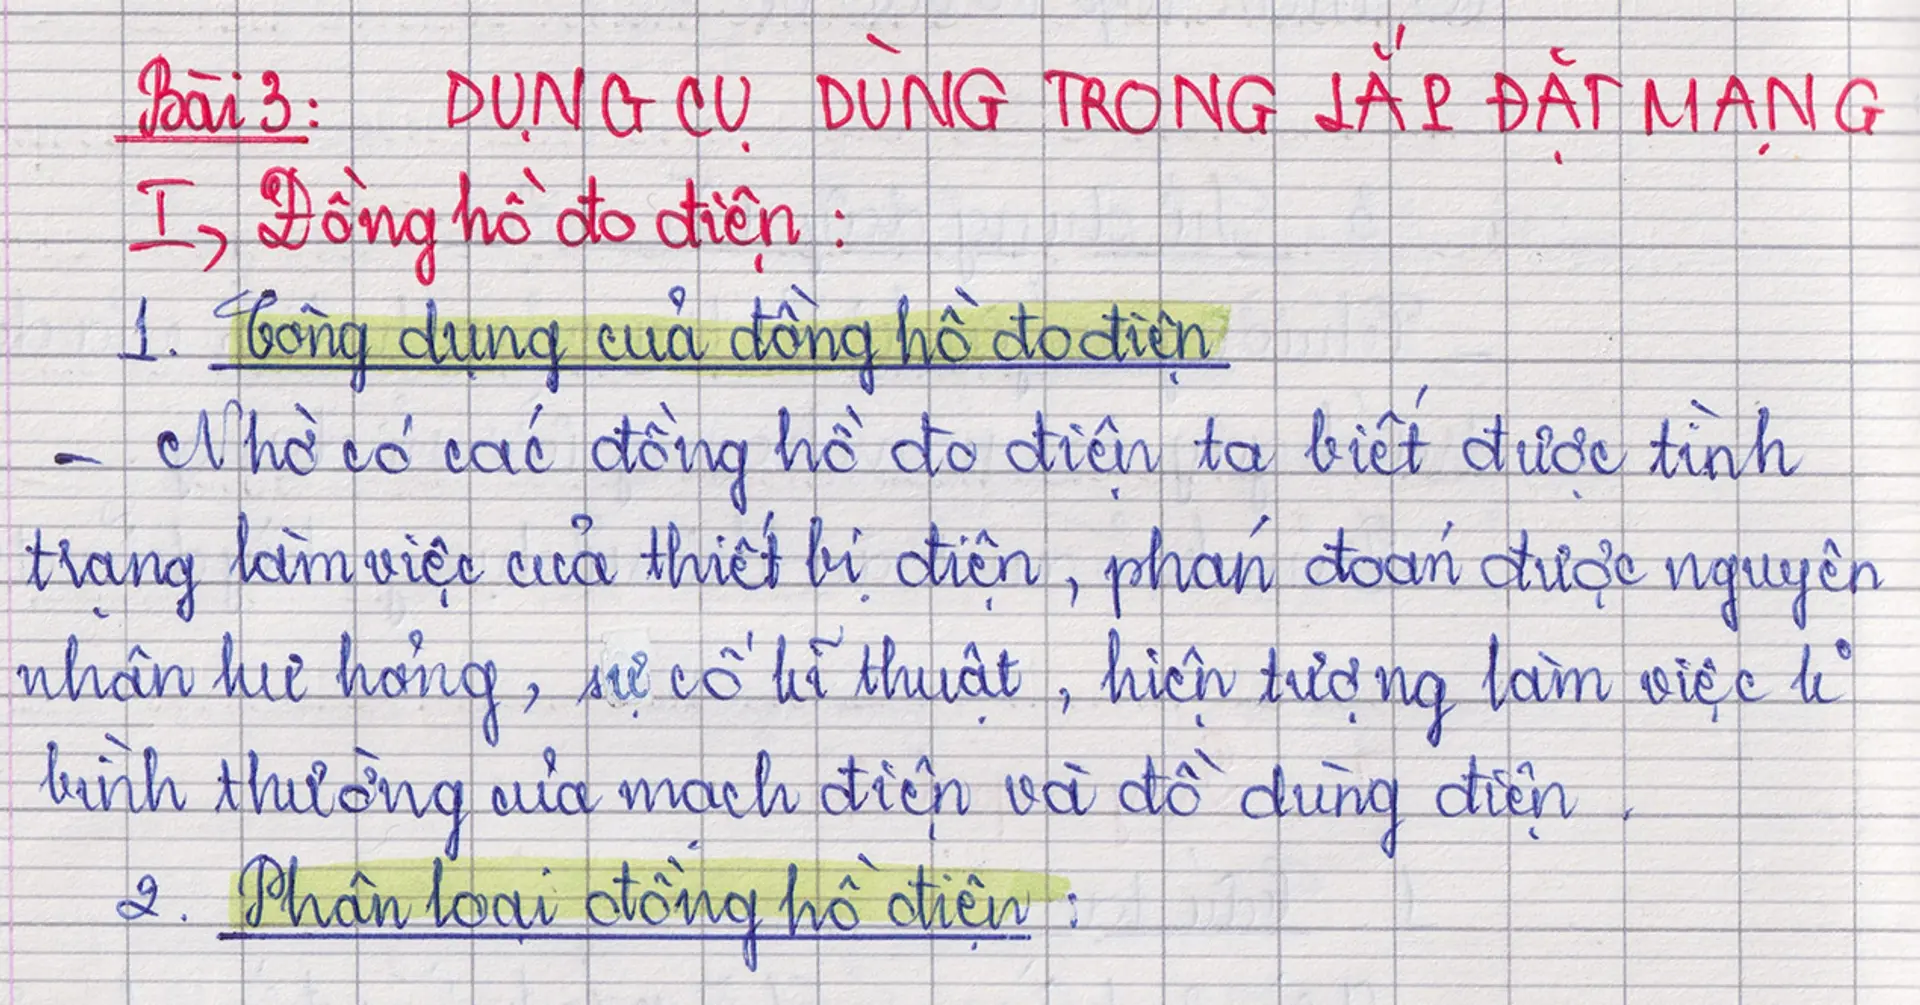 Bài 3: DỤNG CỤ DÙNG TRONG LẮP ĐẶT MẠNG
I, Đồng hồ đo điện:
1. Công dụng của đồng hồ đo điện
- Nhờ có các đồng hồ đo điện ta biết được tình
trạng làm việc của thiết bị điện, phán đoán được nguyên
nhân hư hỏng, sự cố kĩ thuật, hiện tượng làm việc k°
bình thường của mạch điện và đồ dùng điện.
2. Phân loại đồng hồ điện: